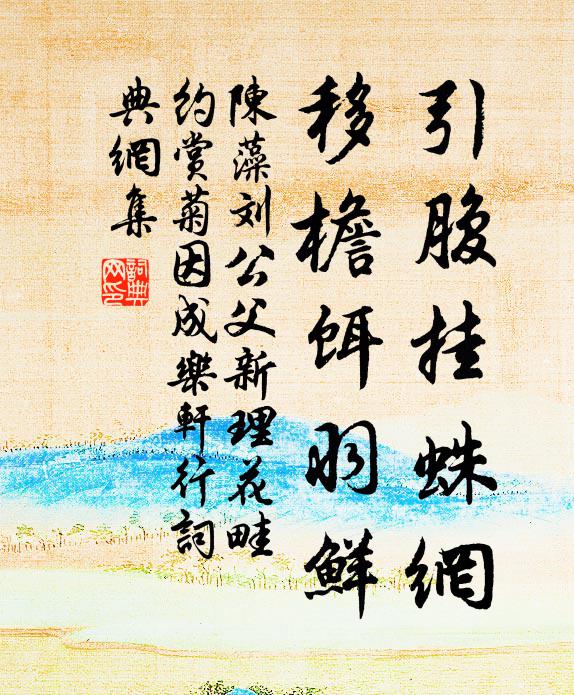 引腹挂蛛網
移檐餌羽鮮
陳藻刘公父新理花畦
約賞菊因成樂軒行詞
典網集
詞典
网印